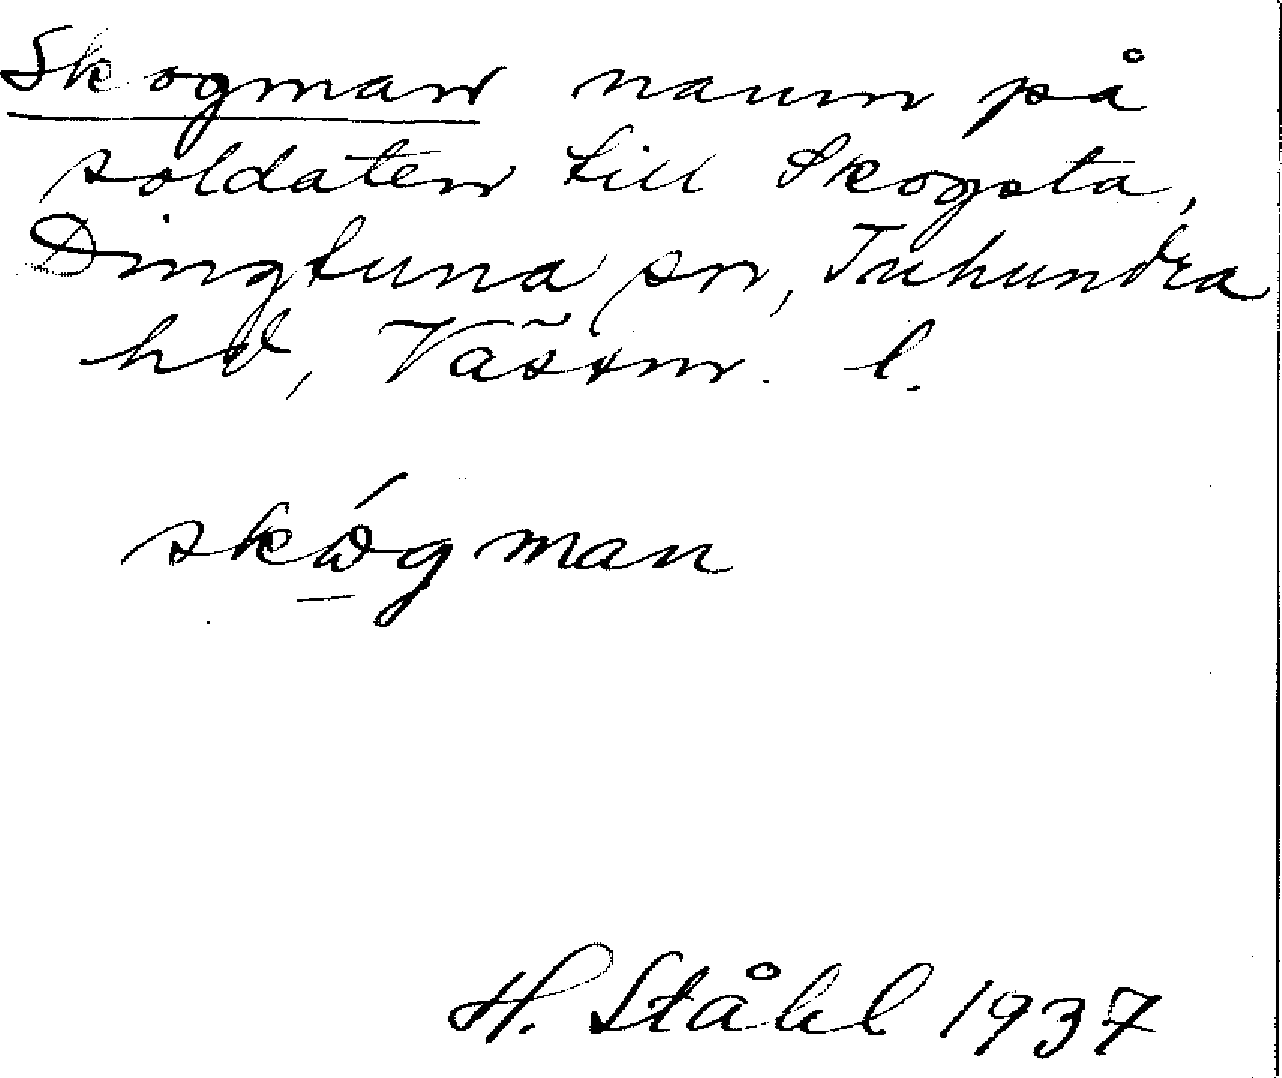 Skogman namn på
soldaten till Skogsta,
Dingtuna sn, Tuhundra
hd, Västm. l.
skógman
H. Ståhl 1937